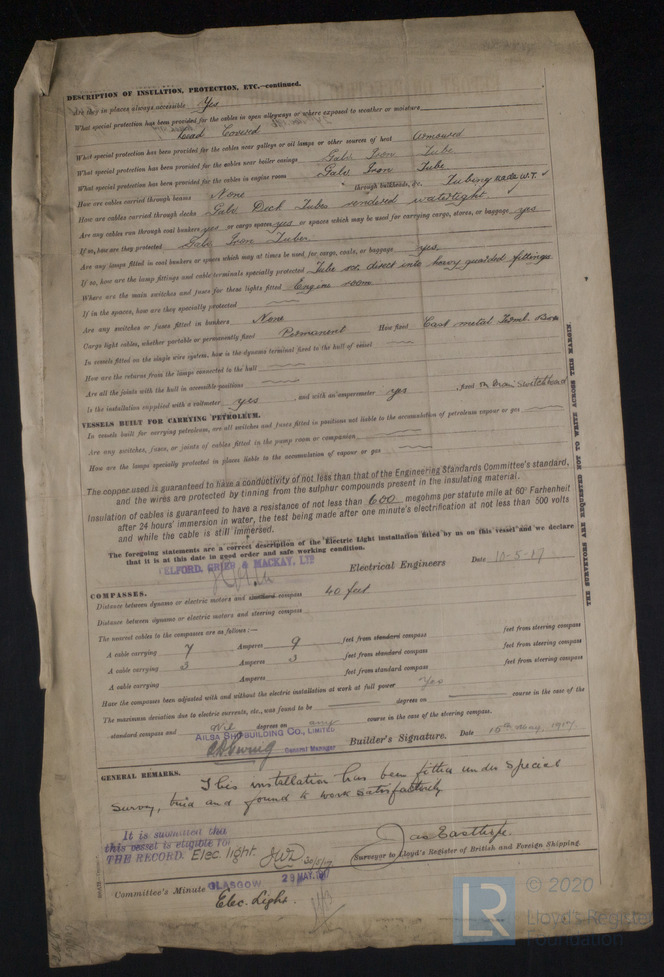 DESCRIPTION OF INSULATION, PROTECTION, ETC.—continued.
Are they in places always accessible Yes
What special protection has been provided for the cables in open alleyways or where exposed to weather or moisture
Lead Covered
What special protection has been provided for the cables near galleys or oil lamps or other sources of heat Armoured
What special protection has been provided for the cables near boiler casings Galv Iron Tube
What special protection has been provided for the cables in engine room Galv Iron Tube
How are cables carried through beams None through bulkheads, &c. Tubing made W.T.
How are cables carried through decks Galv Deck Tubes rendered watertight
Are any cables run through coal bunkers yes or cargo spaces yes or spaces which may be used for carrying cargo, stores, or baggage yes
If so, how are they protected Galv Iron Tubes
Are any lamps fitted in coal bunkers or spaces which may at times be used for cargo, coals, or baggage yes
If so, how are the lamp fittings and cable terminals specially protected Tube direct into heavy guarded fittings
Where are the main switches and fuses for these lights fitted Engine room
If in the spaces, how are they specially protected
Are any switches or fuses fitted in bunkers None
Cargo light cables, whether portable or permanently fixed Permanent How fixed Cast metal Box
In vessels fitted on the single wire system, how is the dynamo terminal fixed to the hull of vessel
How are the returns from the lamps connected to the hull
Are all the joints with the hull in accessible positions
Is the installation supplied with a voltmeter yes, and with an amperemeter yes, fixed on Main Switchboard
VESSELS BUILT FOR CARRYING PETROLEUM.
In vessels built for carrying petroleum, are all switches and fuses fitted in positions not liable to the accumulation of petroleum vapour or gas
Are any switches, fuses, or joints of cables fitted in the pump room or companion
How are the lamps specially protected in places liable to the accumulation of vapour or gas
The copper used is guaranteed to have a conductivity of not less than that of the Engineering Standards Committee's standard,
and the wires are protected by tinning from the sulphur compounds present in the insulating material.
Insulation of cables is guaranteed to have a resistance of not less than 600 megohms per statute mile at 60° Farhenheit
after 24 hours' immersion in water, the test being made after one minute's electrification at not less than 500 volts
and while the cable is still immersed.
The foregoing statements are a correct description of the Electric Light installation fitted by us on this vessel and we declare
that it is at this date in good order and safe working condition.
TELFORD, GRIER & MACKAY, LTD Electrical Engineers Date 10-5-17
COMPASSES.
Distance between dynamo or electric motors and standard compass 40 feet
Distance between dynamo or electric motors and steering compass
The nearest cables to the compasses are as follows:—
A cable carrying 7 Amperes 9 feet from standard compass feet from steering compass
A cable carrying 3 Amperes 3 feet from standard compass feet from steering compass
A cable carrying Amperes feet from standard compass feet from steering compass
Have the compasses been adjusted with and without the electric installation at work at full power Yes
The maximum deviation due to electric currents, etc., was found to be degrees on course in the case of the
standard compass and nil degrees on any course in the case of the steering compass.
AILSA SHIPBUILDING CO., LIMITED
General Manager Builder's Signature. Date 16th May, 1917
GENERAL REMARKS.
This installation has been fitted under Special
Survey, tried and found to work satisfactorily
It is submitted that
this vessel is eligible for
THE RECORD. Elec light. JWD 30/5/17
Jas Easthope.
Surveyor to Lloyd's Register of British and Foreign Shipping.
Committee's Minute GLASGOW 29 MAY.
Elec. Light.
THE SURVEYORS ARE REQUESTED NOT TO WRITE ACROSS THIS MARGIN.
LR © 2020
Lloyd's Register
Foundation